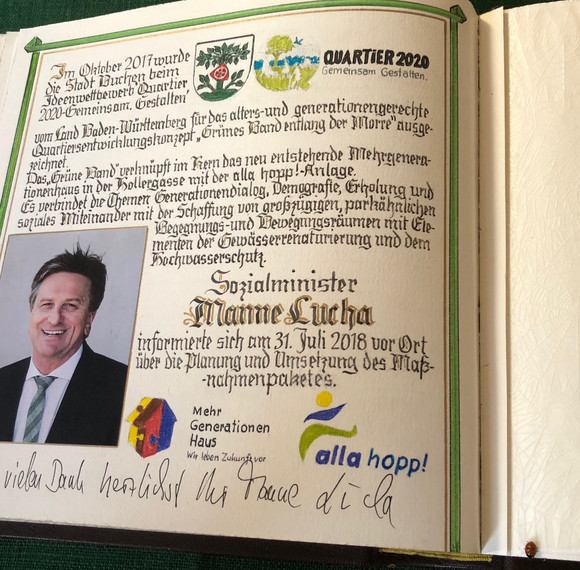 Im Oktober 2017 wurde
die Stadt Buchen beim
Ideenwettbewerb Quartier
2020-Gemeinsam. Gestalten",
QUARTIER 2020
Gemeinsam Gestalten.
vom Land Baden-Württemberg für das alters-und generationengerechte
Quartiersentwicklungskonzept „Grünes Band entlang der Morre" ausge-
zeichnet.
Das „Grüne Band" verknüpft im Kern das neu entstehende Mehrgenera-
tionenhaus in der Hollergasse mit der alla hopp!-Anlage.
Es verbindet die Themen Generationendialog, Demografie, Erholung und
soziales Miteinander mit der Schaffung von großzügigen, parkähnlichen
Begegnungs-und Bewegungsräumen mit Ele-
menten der Gewässerrenaturierung und dem
Hochwasserschutz.
Sozialminister
Manne Lucha
informierte sich am 31. Juli 2018 vor Ort
über die Planung und Umsetzung des Maß-
-nahmenpaketes.
Mehr
Generationen
Haus
Wir leben Zukunft vor
alla hopp!
vielen Dank herzlichst Ihr Manne Lucha